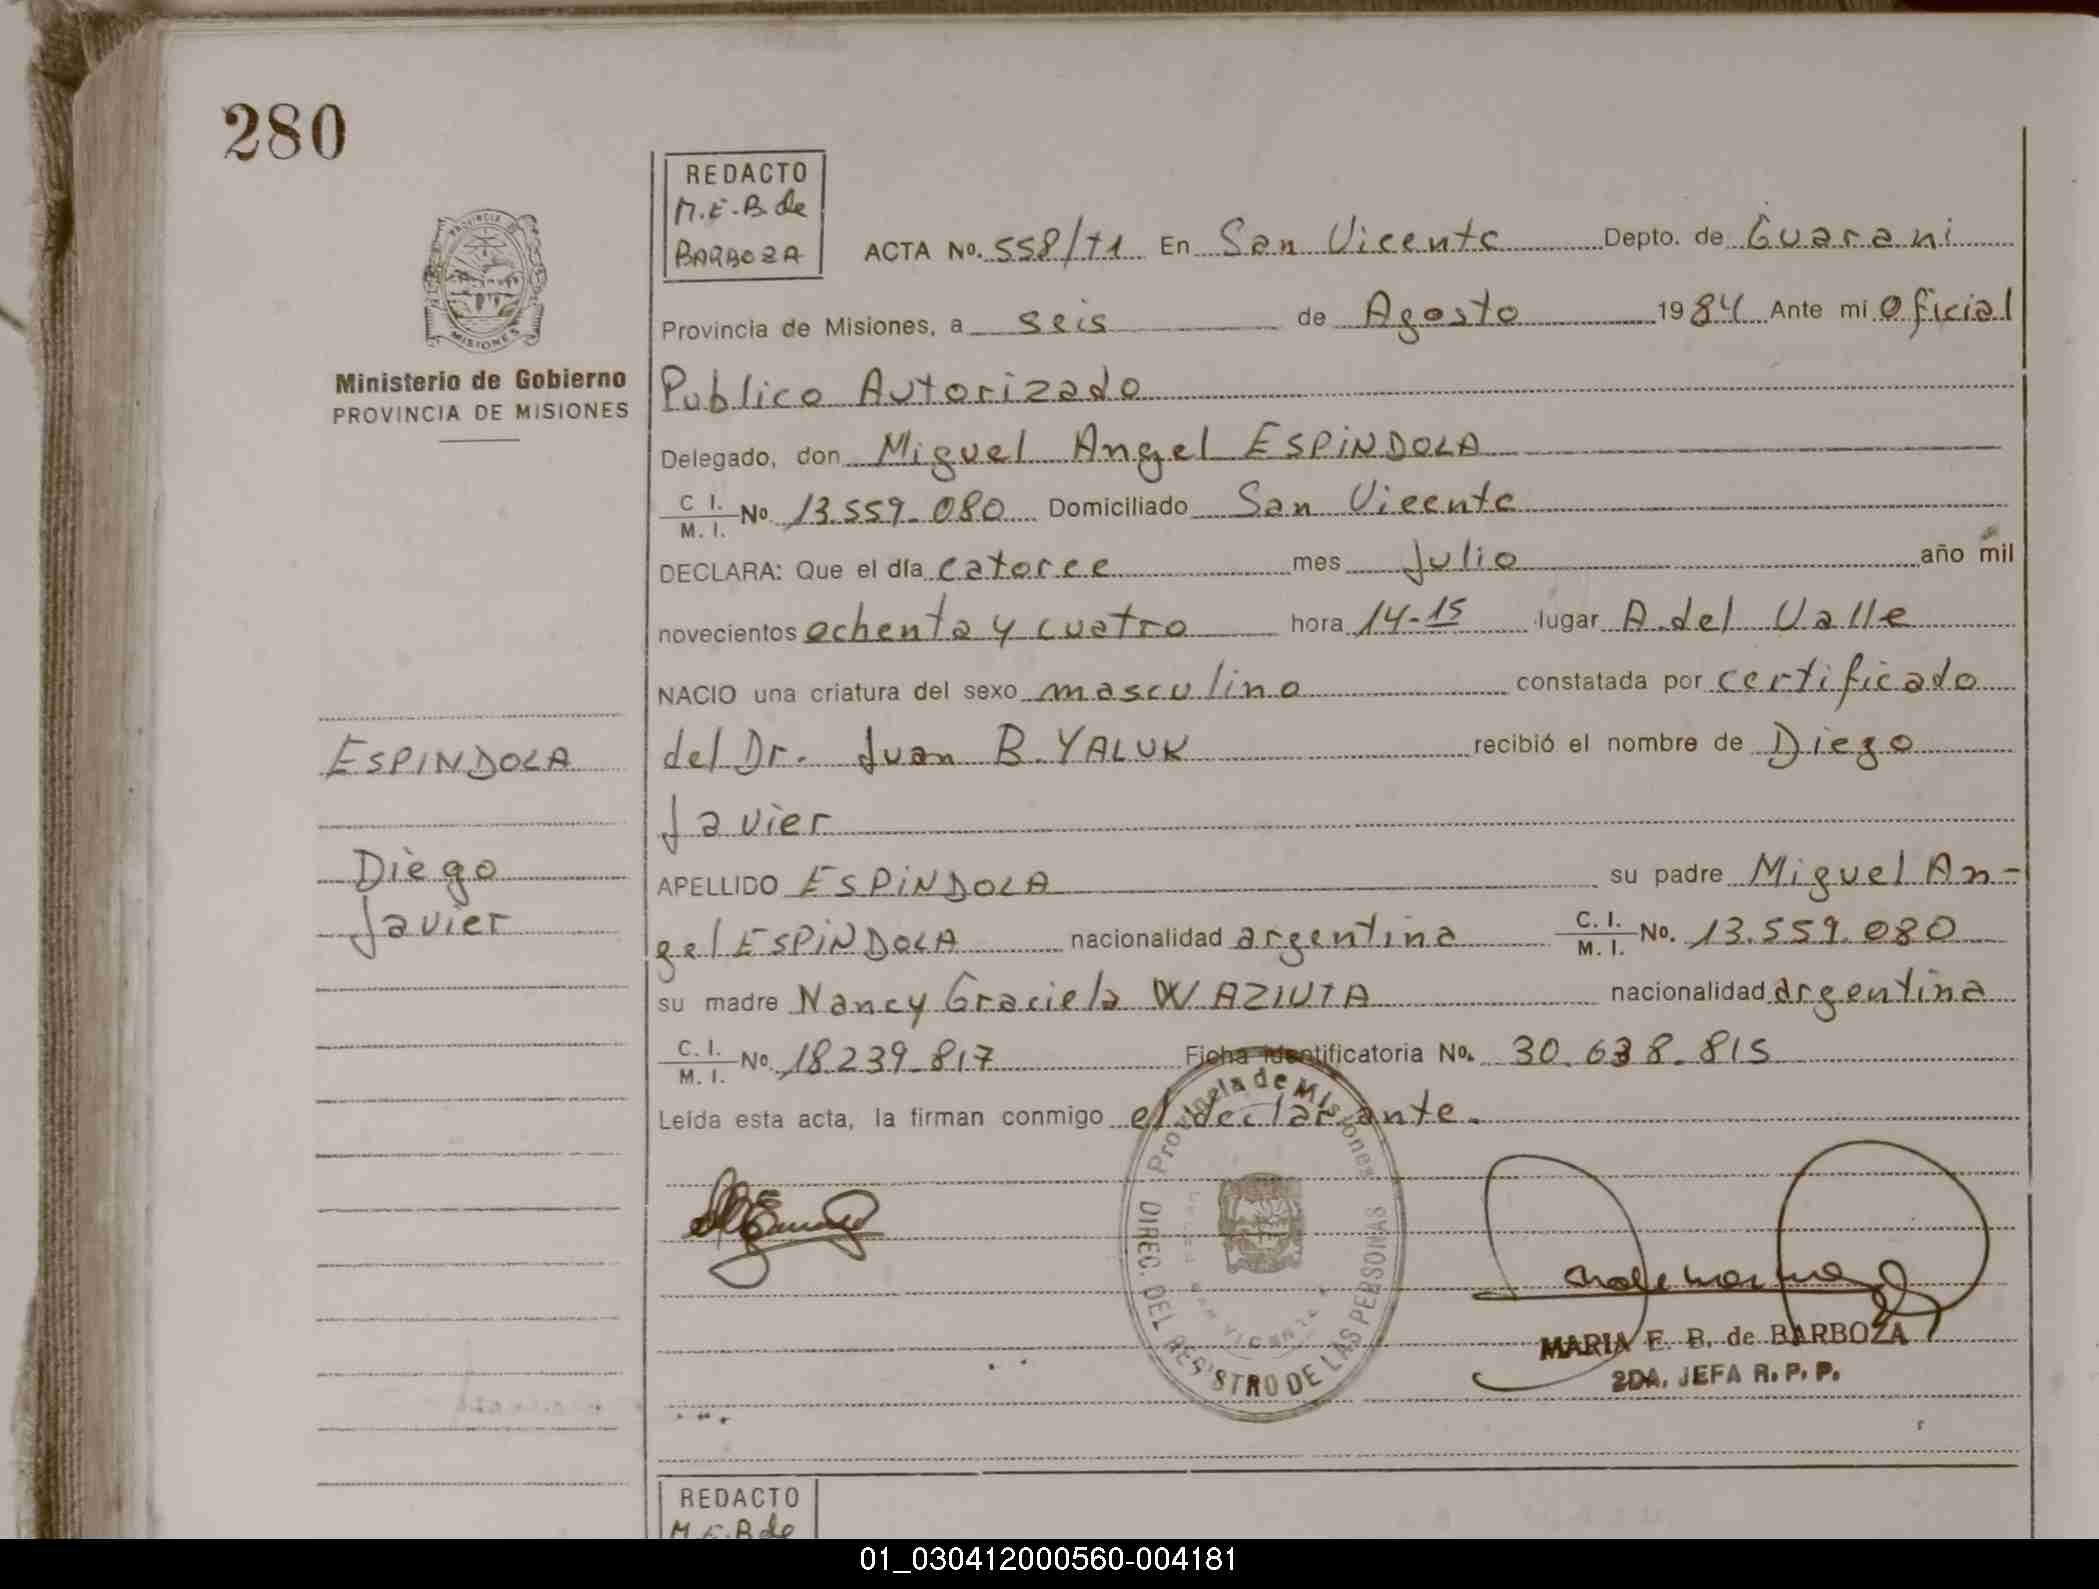 280
REDACTO
M.E.B.de
BARBOZA
ACTA No. 558/T1 En San Vicente Depto. de Guarani
Provincia de Misiones, a seis de Agosto 1984 Ante mi Oficial
Publico Autorizado
Delegado, don Miguel Angel ESPINDOLA
C. I.
M. I. No. 13.559.080 Domiciliado San Vicente
DECLARA: Que el día catorce mes Julio año mil
novecientos ochenta y cuatro hora 14-15 lugar A.del Valle
NACIO una criatura del sexo masculino constatada por certificado
del Dr. Juan B. YALUK recibió el nombre de Diego
Javier
APELLIDO ESPINDOLA su padre Miguel An-
gel ESPINDOLA nacionalidad argentina C. I. M. I. No. 13.559.080
su madre Nancy Graciela WAZIUTA nacionalidad argentina
C. I.
M. I. No. 18.239.817 Ficha identificatoria No. 30.638.815
Leída esta acta, la firman conmigo el declarante.
PROVINCIA DE
MISIONES
Ministerio de Gobierno
PROVINCIA DE MISIONES
ESPINDOLA
Diego
Javier
Provincia de Misiones
DIREC. DEL REGISTRO DE LAS PERSONAS
MARIA E. B. de BARBOZA
2DA. JEFA R. P. P.
REDACTO
M.E.B de
01_030412000560-004181